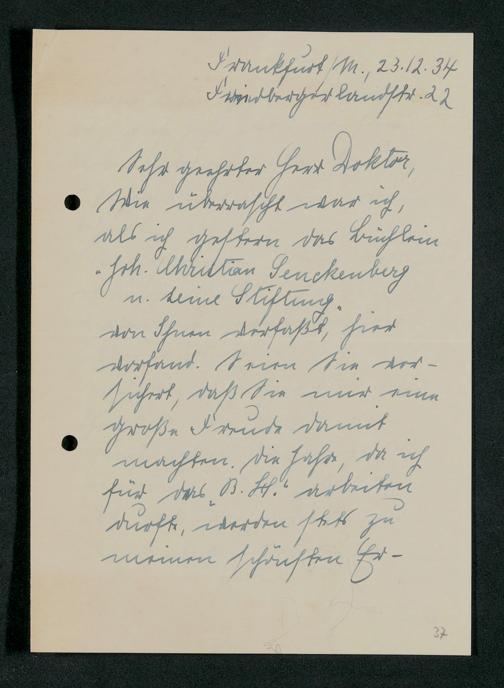 Frankfurt/M., 23.12.34
Friedbergerlandstr. 22
Sehr geehrter Herr Doktor,
Wie überrascht war ich,
als ich gestern das Büchlein
"Joh. Christian Senckenberg
u. seine Stiftung"
von Ihnen verfaßt, hier
vorfand. Seien Sie ver-
sichert, daß Sie mir eine
große Freude damit
machten. Die Jahre, da ich
für das "B. H." arbeiten
durfte, werden stets zu
meinen schönsten Er-
37